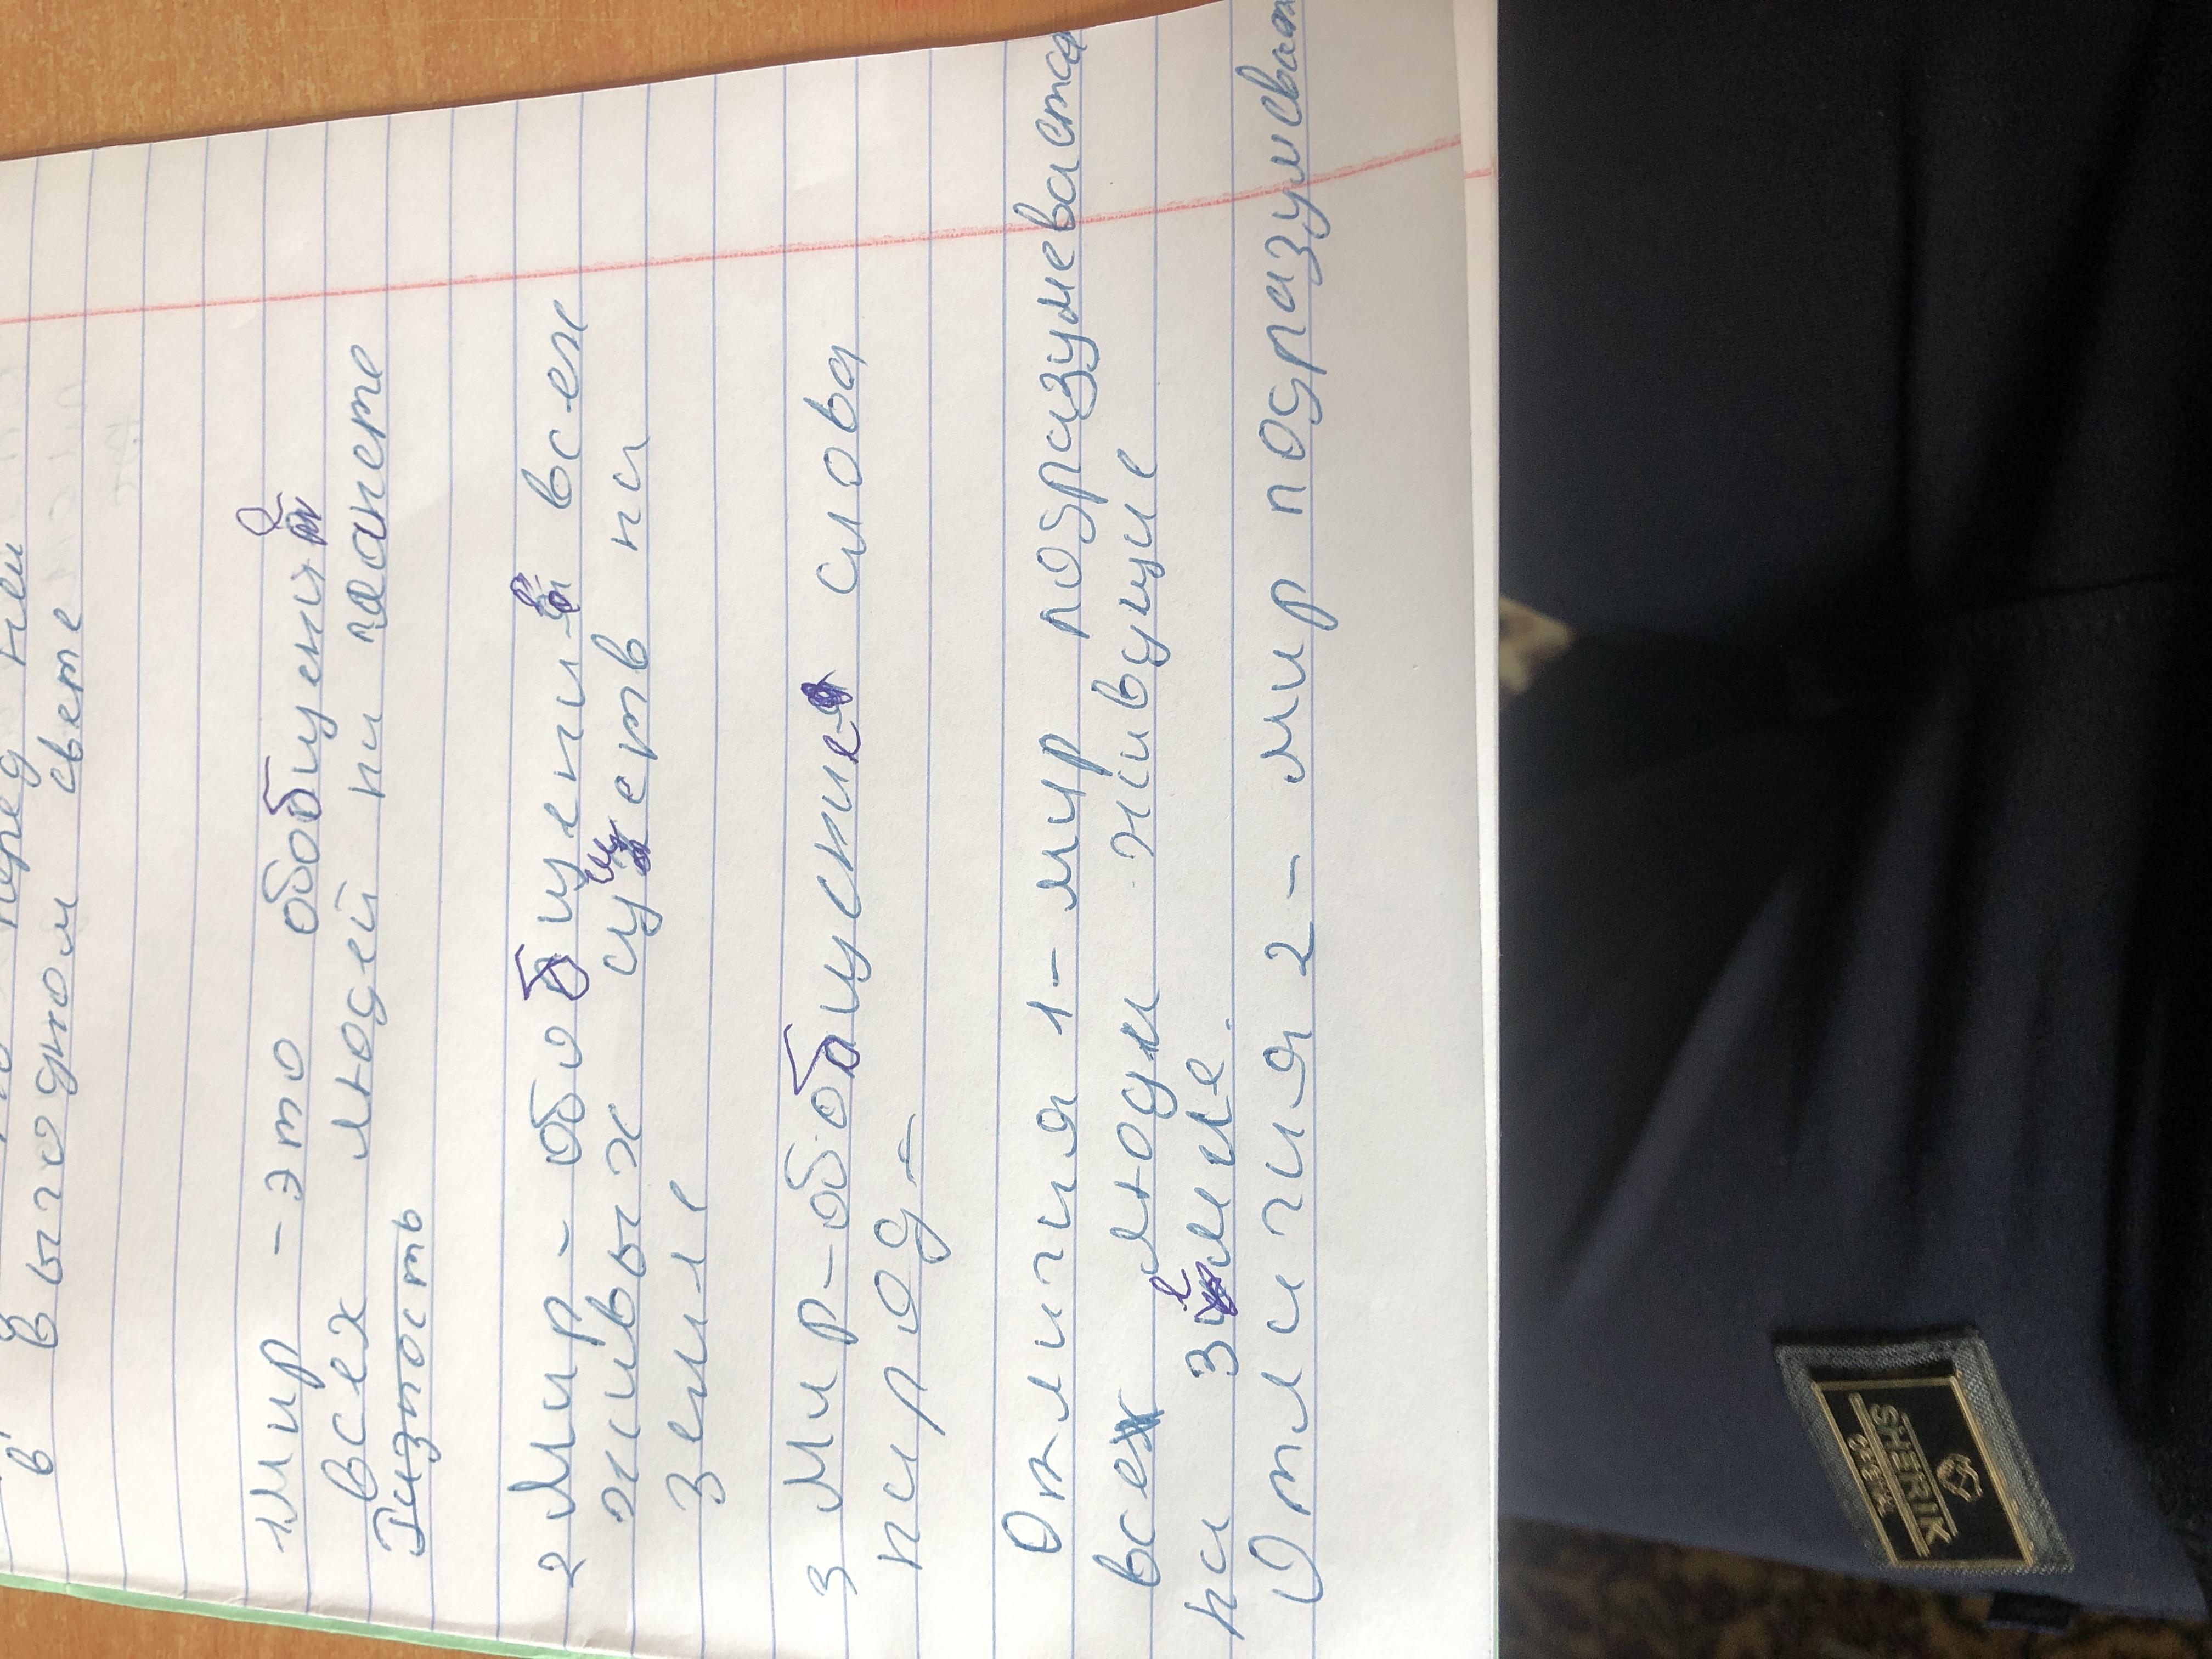 перед ней
в выгодном свете
1 мир - это обобщение
всех людей на планете
Разность
2 Мир - обобщение всех
живых существ на
земле
3 Мир - обобщение слова
народ =
Отличия 1 - мир подразумевает
все люди живущие
на земле.
Отличия 2 - мир подразумевает
SHERIK